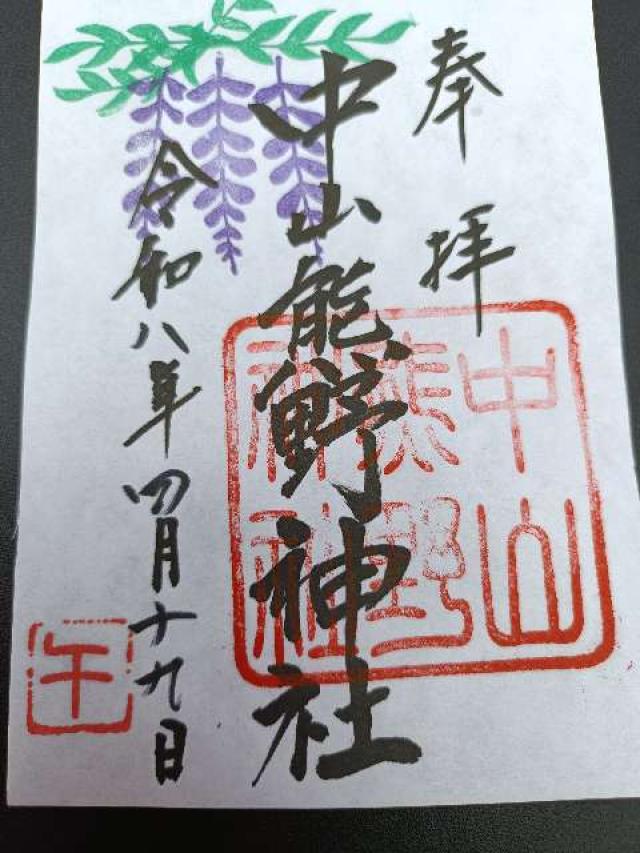 奉拝
中山熊野神社
中山熊野神社
令和八年四月十九日
午